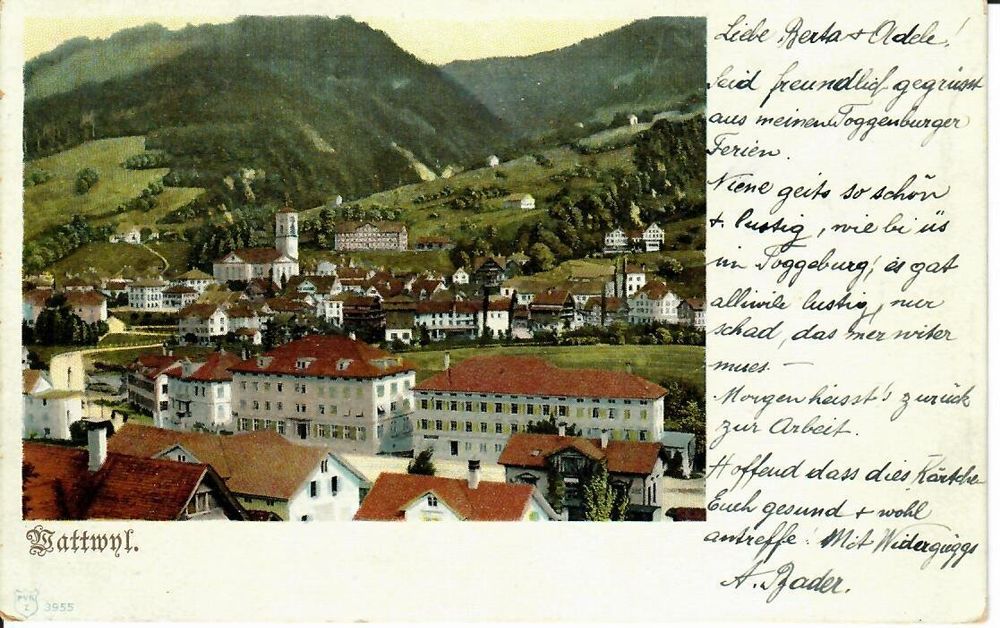 Liebe Berta + Adele!
Seid freundlich gegrüsst
aus meinen Toggenburger
Ferien.
Niene geits so schön
+ lustig, wie bi üs
im Toggeburg, es gat
alliwile lustig, nur
schad, das mer witer
mues. —
Morgen heisst's zurück
zur Arbeit.
Hoffend dass dies Kärtche
Euch gesund + wohl
antreffe! Mit
A. Bader.
Wattwyl.
PVK
Z
3955